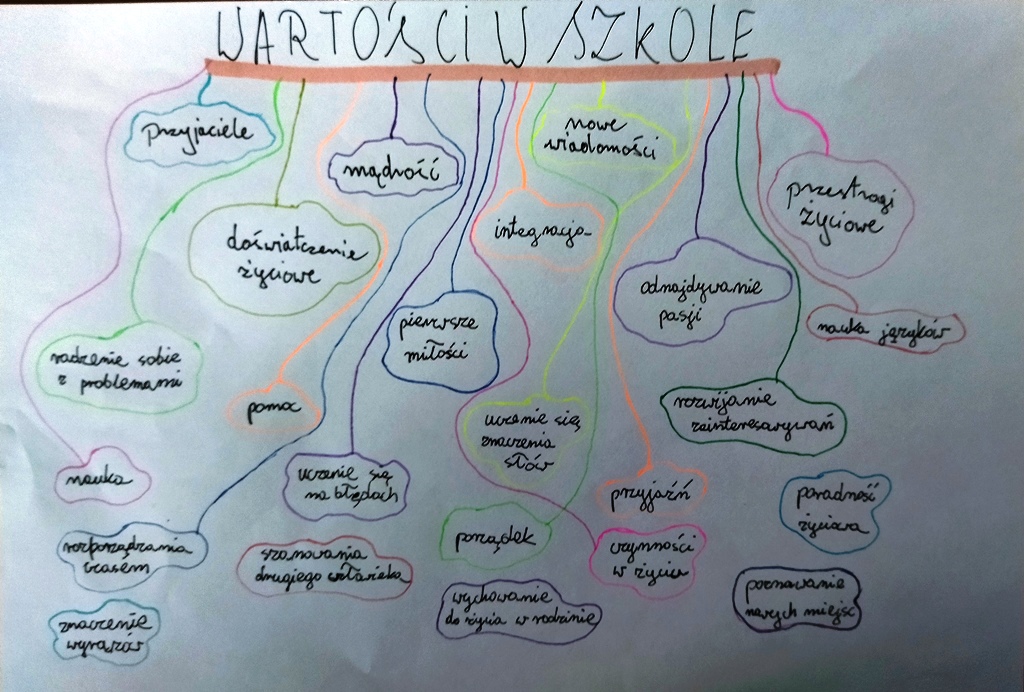 WARTOŚCI W SZKOLE
przyjaciele
mądrość
nowe
wiadomości
przestrogi
życiowe
doświatczenie
życiowe
integracja
odnajdywanie
pasji
pierwsze
miłości
nauka języków
radzenie sobie
z problemami
pomoc
uczenie się
znaczenia
słów
rozwijanie
zainteresowywań
nauka
uczenie się
na błędach
przyjaźń
poradność
życiowa
rozporządzania
czasem
szanowania
drugiego człowieka
porządek
czynności
w życiu
wychowanie
do życia w rodzinie
poznawanie
nowych miejść
znaczenie
wyrazów